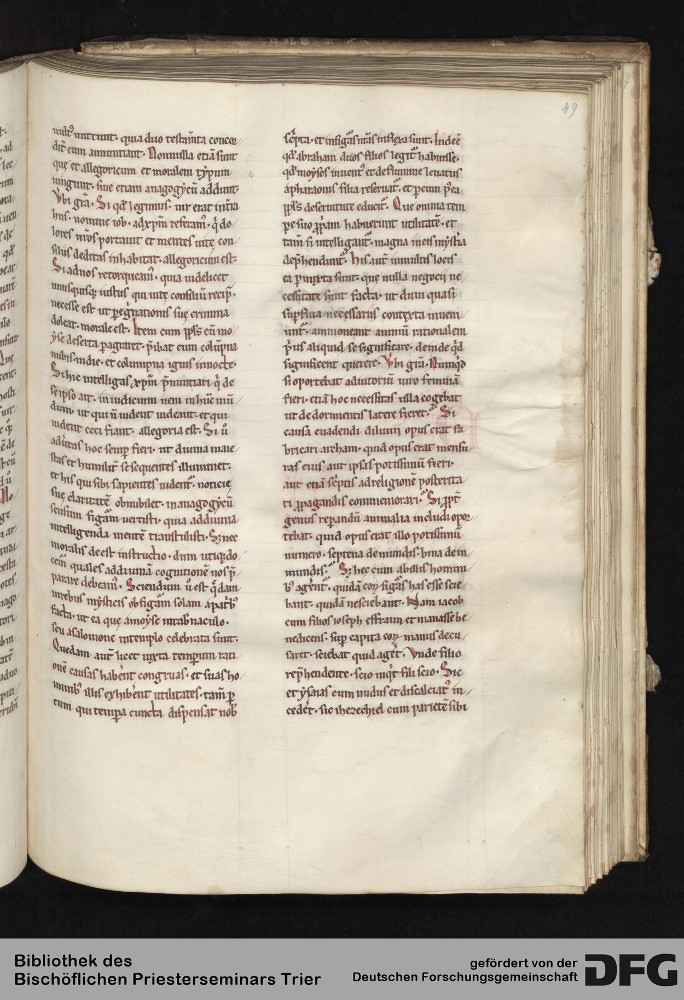 49
dit eum annuntiant. Nonnulla etiã sunt
que et allegoricum et moralem typum
iungunt. siue etiam anagogycũ addunt.
hus. nomine iob. adxpm̃ referam᾽. q̃ do
lores nr̃os portauit et mentes uite con
silus deditas inhabitat. allegoricum est.
Si ad nos retorqueam᾽. quia uidelicet
unusquisq; iustus qui uite consiliũ recip̃.
necesse est ut p̱egrinationis sue erumna
doleat. morale est. Item cum ppl̃s cũ mo
yse deserta p̱agraret. p̃ibat eum colũpna
nubis indie. et columpna ignis innocte.
Si hic intelligas xp̃m p̃nuntiari q̃ de
se ipso ait. in iudicium ueni in hũc mũ
dum. ut qui ñ uident uideant. et qui
uident ceci fiant. allegoria est. Si ũ
aduertas hoc semp̱ fieri. ut diuina maie
stas et humilit̃ se sequentes illuminet.
et his qui sibi sapientes uident᾽. noticie
sue claritatẽ obnubilet. in anagogycũ
sensum figam̃ uertisti. quia ad diuina
intelligenda mentẽ transtulisti. Si nec
moralis deest instructio. dum utiq; do
cem᾽ quales ad diuinã cognitionẽ nos p̃
parare debeam᾽. Sciendum ũ est q̃dam
in rebus mysticis ob figam̃ solam ap̱atrib᾽
facta. ut ea que amoyse intab̃naculo.
seu asalomone intemplo celebrata sunt.
Quedam aut̃ licet iuxta temporum rati
onẽ causas habeñt congruas. et suas ho
minib᾽ illis exhibeñt utilitates. tam̃ p̱
eum qui tempora cuncta dispensat nob᾽
sc̃pta. et infiguris nr̃is inserta sunt. Inde ẽ
qd̃ abraham duos filios legit᾽ habuisse.
qd̃ moyses inuent᾽ et de flumine leuatus
apharaonis filia reseruat᾽. et p̱ eum p̱ ea
ppl̃s deseruitute educit᾽. Que omnia tem
p̱e suo p̱p̃am habuerunt utilitatẽ. et
tam̃ si intelligant᾽. magna in eis mysteria
dep̱hendunt᾽. His aut̃ in multis locis
ea p̱mixta sunt. que nulla negocii ne
cessitate sunt facta. ut dum quasi
sup̱flua necessariis contexta inueni
unt᾽. ammoneant animũ rationalem
p̱us aliquid se significare. deinde qd̃
significent querere. Vbi gr̃a. Numq̇d
si oportebat adiutoriũ uiro feminã
fieri. etiã hoc necessitas ulla cogebat
ut de dormientis latere fieret. Si
causa euadendi diluuii opus erat fa
bricari archam. quid opus erat mensu
ras eius aut ipsas potissimũ fieri.
aut etiã sc̃ptis ad religionẽ posterita
ti p̱pagandis commemorari. Si p̱pt̃
genus reparandũ animalia includi opor
tebat. quid opus erat illo potissimũ
numero. septena de mundis. bina de in
mundis. Si hec cum absens homini
b᾽ agerent᾽. quidã eoꝝ figas̃ has esse scie
bant. quidã nesciebant. Nam iacob
cum filios ioseph effraim et manasse be
nedicens. sup̱ capita eoꝝ manus decu
saret. sciebat quid ageret. Vnde filio
rep̱hendente. scio inq̇t fili scio. Sic
et ysaias cum nudus et discalciat᾽ in
cederet. sic ihezechiel cum parietẽ sibi
Bibliothek des
Bischöflichen Priesterseminars Trier
gefördert von der
Deutschen Forschungsgemeinschaft
DFG